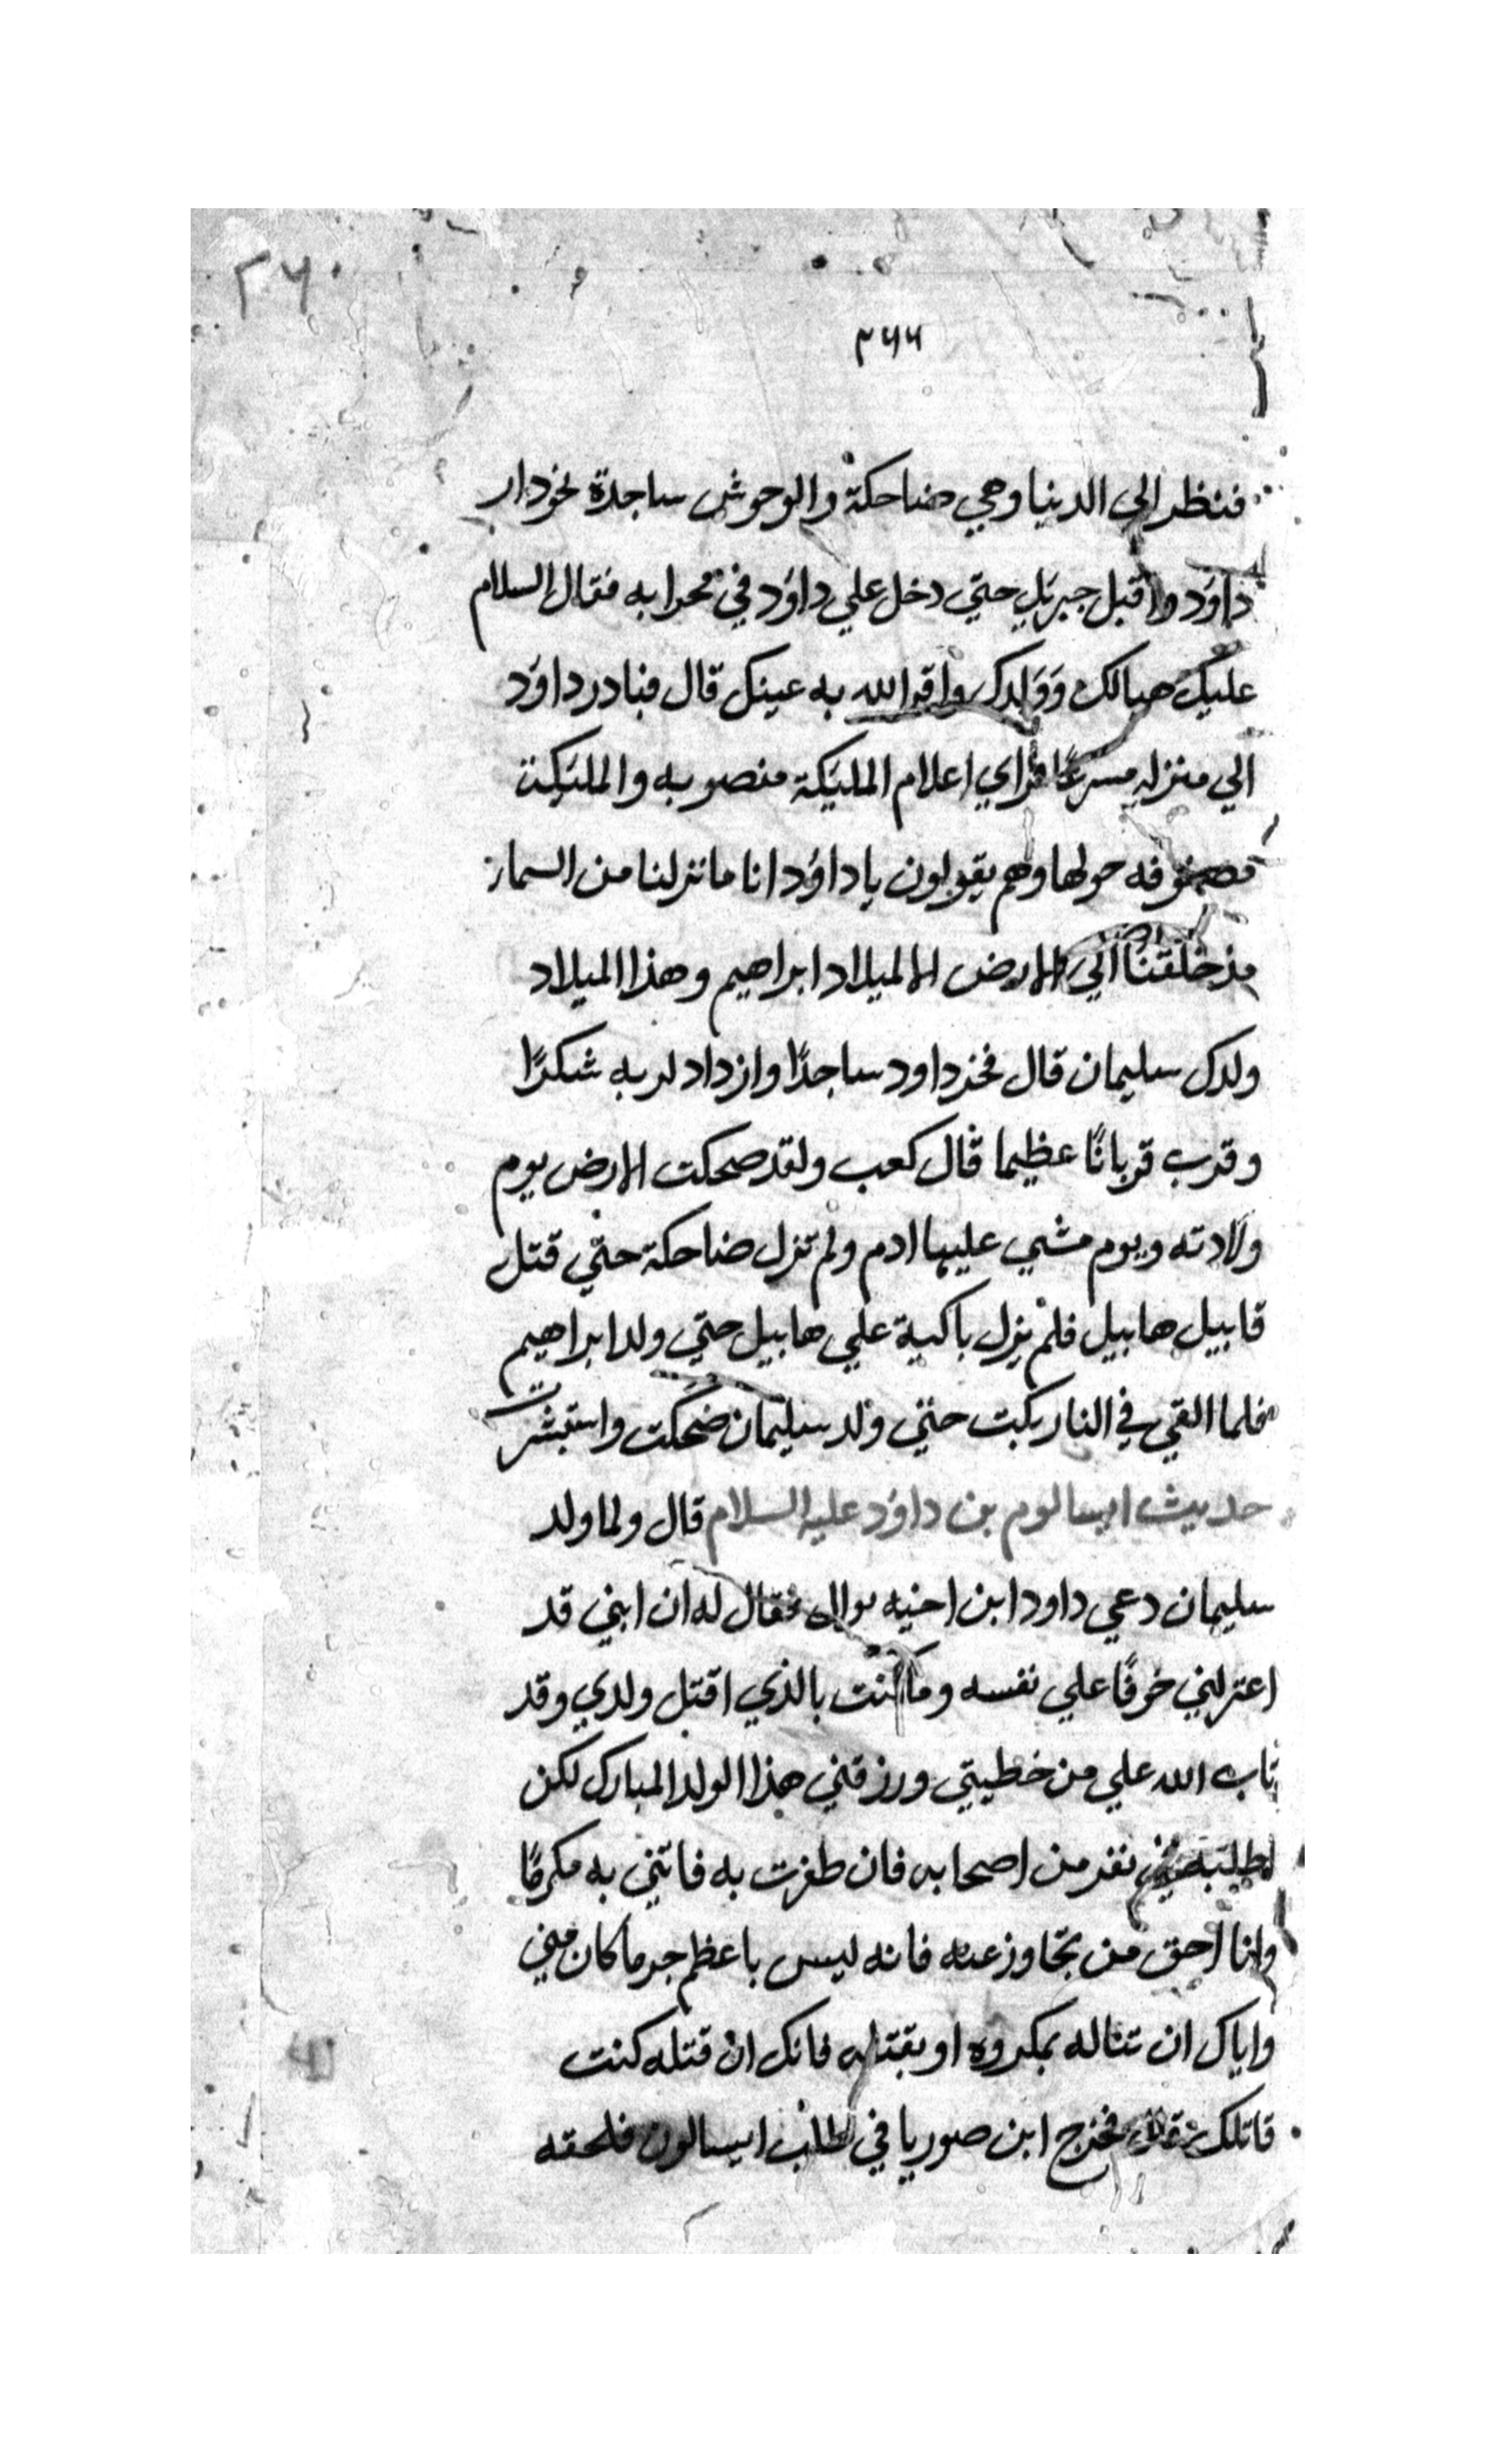 ٢٦٠
٢٦٦
فنظر الي الدنيا وهي ضاحكة والوحوش ساجدة نحو دار
داوٗد واقبل جبرئل حتي دخل علي داوٗد في محرابه فقال السلام
عليك هيالك وولدك واقر الله به عينك قال فبادر داوٗد
الي منزله مسرعًا فراي اعلام الملئكة منصوبه والملئكة
مصفوفه حولها وهم يقولون يا داوٗد انا ما نزلنا من السماء
مذ خلقنا الي الارض الا لميلاد ابراهيم وهذا الميلاد
ولدك سليمان قال فخر داود ساجدًا وازداد لربه شكرًا
وقرب قربانًا عظيما قال كعب ولقد ضحكت الارض يوم
ولادته ويوم مشي عليها ادم ولم تزل ضاحكة حتي قتل
قابيل هابيل فلم يزل باكية علي هابيل حتي ولد ابراهيم
فلما القي في النار بكت حتي ولد سليمان ضحكت واستبشرت
حديث ايسالوم بن داوٗد عليه السلام قال ولما ولد
سليمان دعي داود ابن اخيه فقال له ان ابني قد
اعتزلني خوفًا علي نفسه وما كنت بالذي اقتل ولدي وقد
تاب الله علي من خطيتي ورزقني هذا الولد المبارك لكن
اطلبه في نفر من اصحابه فان ظفرت به فاتني به مكرمًا
وانا احق من تجاوز عنه فانه ليس باعظم جرما كان مني
واياك ان تناله بمكروه او بقتله فانك ان قتله كنت
قاتلك فخرج ابن صوريا في طلب ايسالون فلحقه